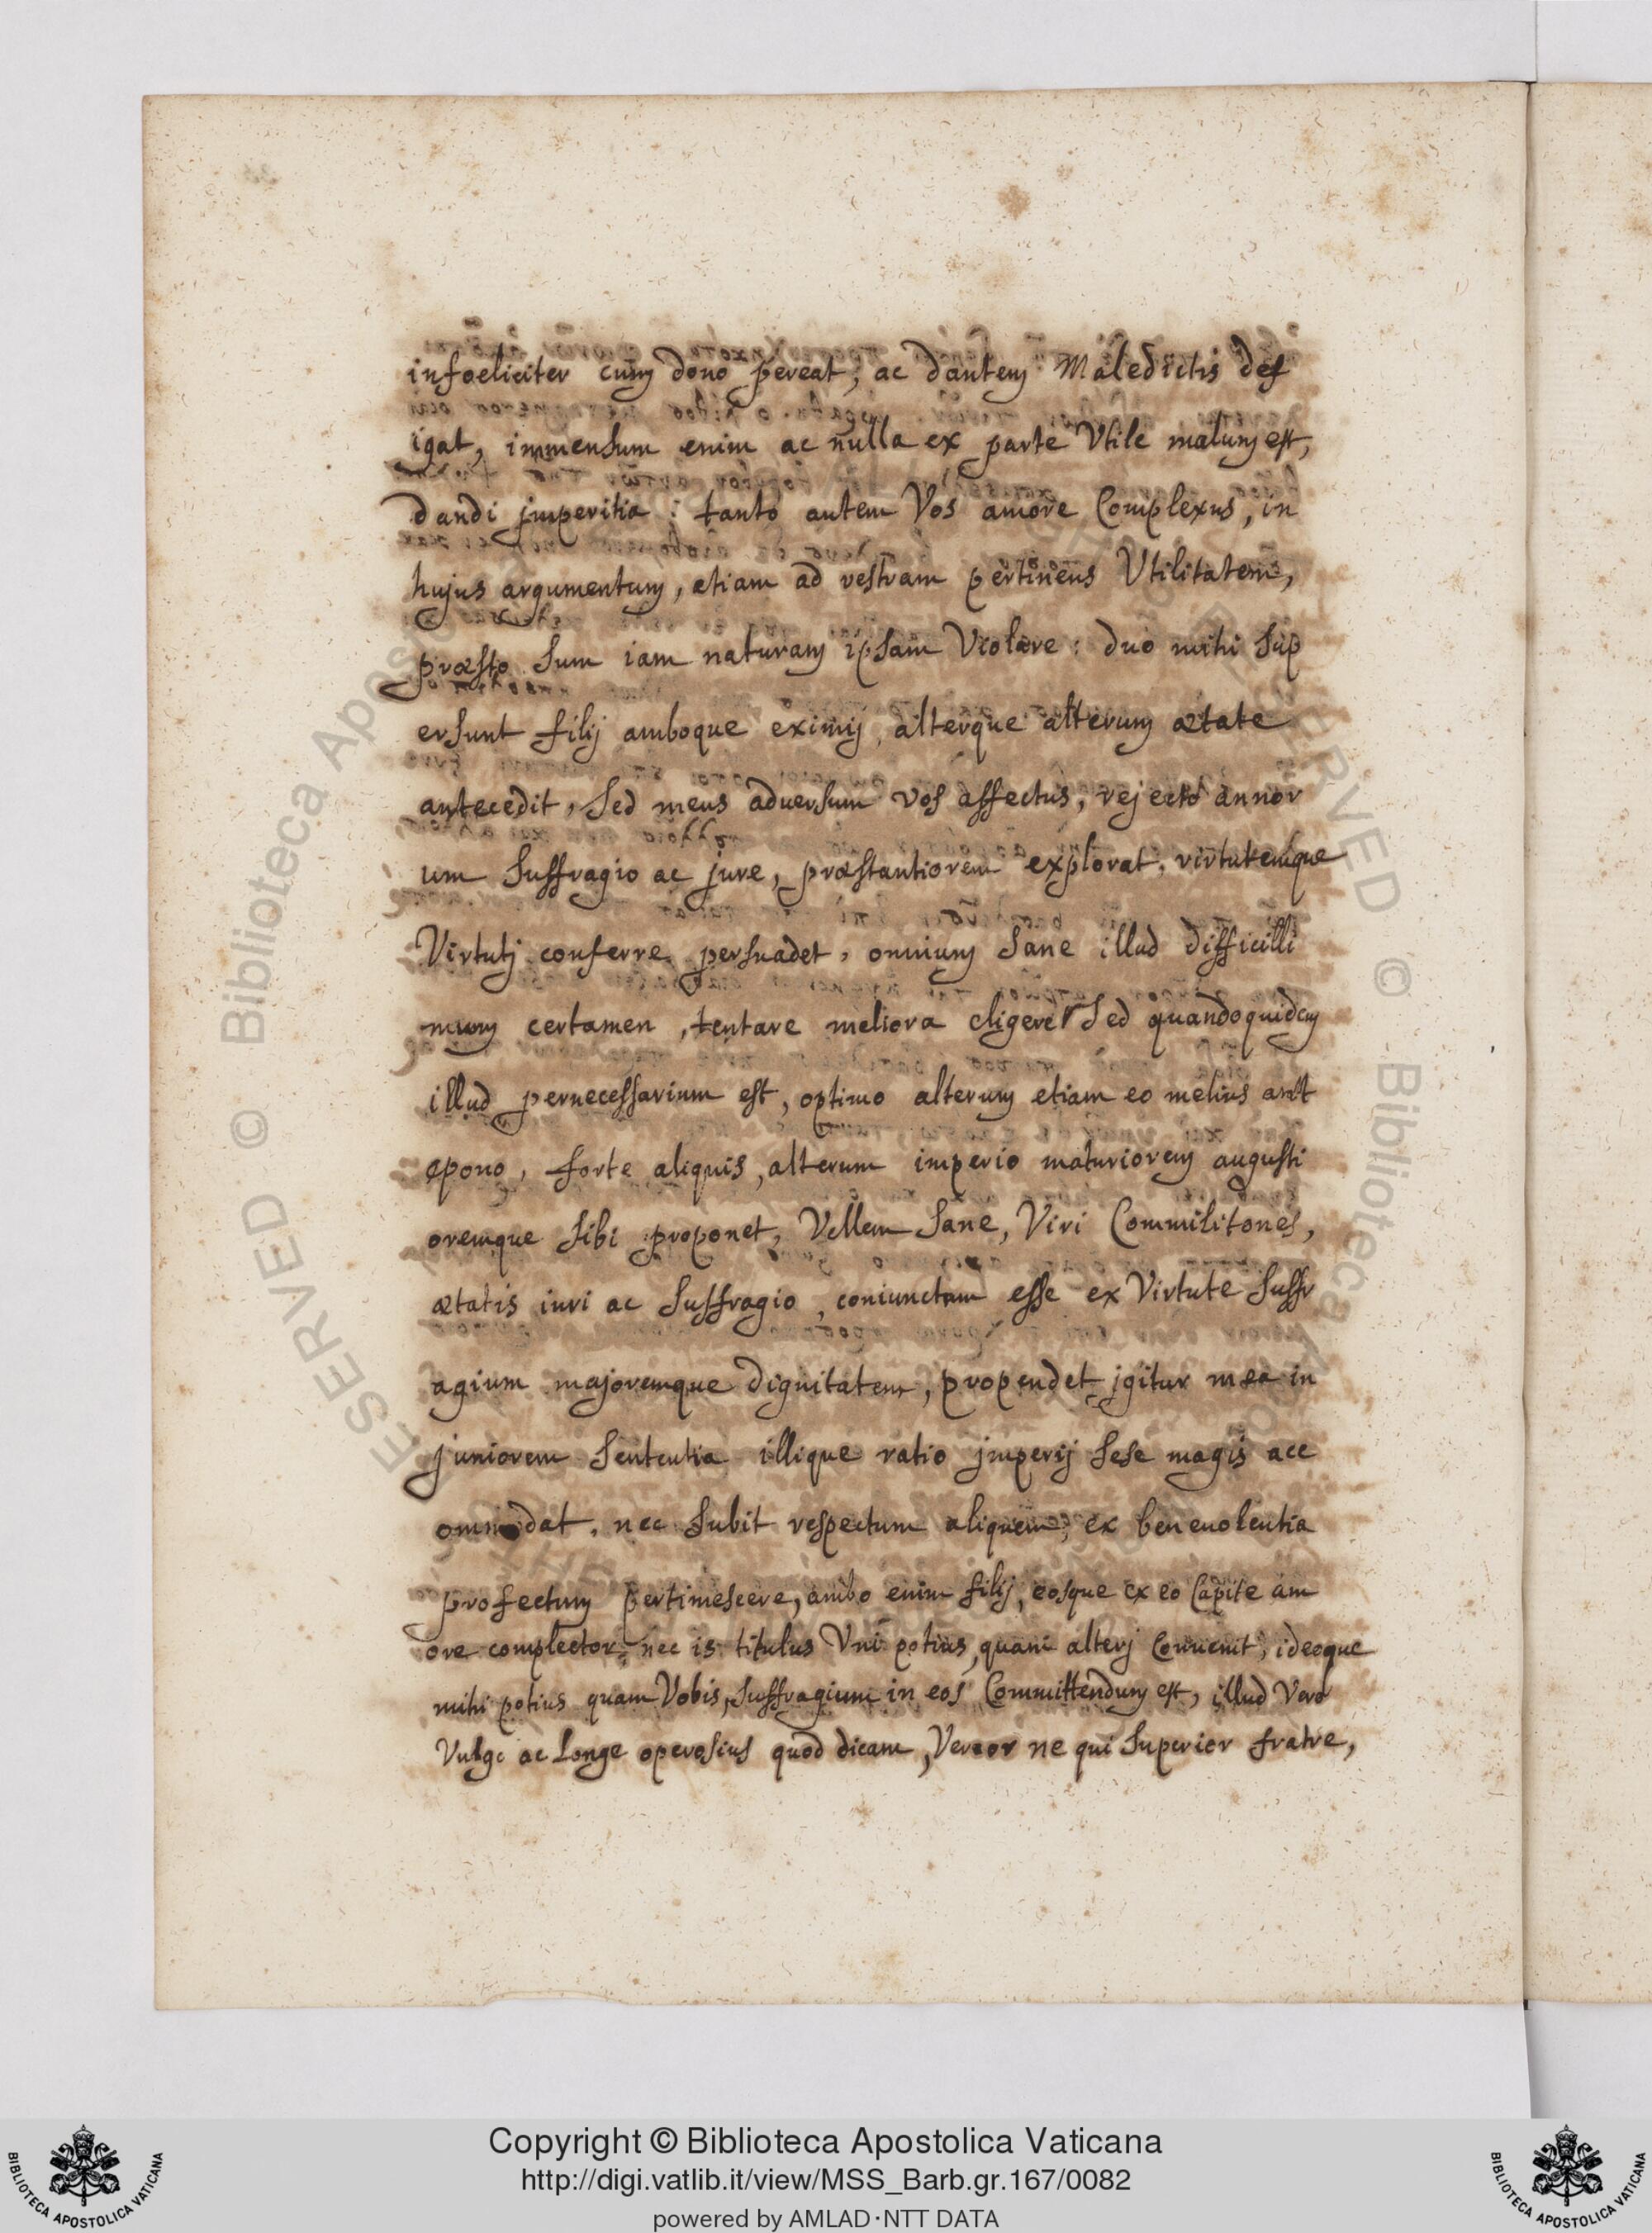 infoeliciter cum dono pereat, ac dantem Maledictis def
igat, immensum enim ac nulla ex parte Vtile malum est,
dandi jmperitia; tanto autem Vos amore Complexus, in
hujus argumentum, etiam ad vestram pertinens Vtilitatem,
præsto sum iam naturam ipsam Violare: duo mihi sup
ersunt filij amboque eximij, alterque alterum ætate
antecedit, sed meus aduersum vos affectus, rejecto annor
um suffragio ac jure, præstantiorem explorat, virtutemque
Virtutj conferre persuadet, omnium sane illud difficilli
mum certamen, tentare meliora eligere sed quandoquidem
illud pernecessarium est, optimo alterum etiam eo melius ant
epono, forte aliquis, alterum imperio maturiorem augusti
oremque sibi proponet, Vellem sane, Viri Commilitones,
ætatis iuri ac suffragio, coniunctam esse ex Virtute suffr
agium majoremque dignitatem, propendet jgitur mea in
juniorem sententia illique ratio jmperij sese magis acc
ommodat, nec subit respectum aliquem, ex beneuolentia
profectum pertimescere, ambo enim filij, eosque ex eo Capite am
ore complector, nec is titulus Vni potius, quam alterj Conuenit, ideoque
mihi potius quam Vobis, suffragium in eos Committendum est, illud Vero
Vulgo ac longe operosius quod dicam, Vereor ne qui superior fratre,
Copyright © Biblioteca Apostolica Vaticana
http://digi.vatlib.it/view/MSS_Barb.gr.167/0082
powered by AMLAD·NTT DATA
BIBLIOTECA APOSTOLICA VATICANA
BIBLIOTECA APOSTOLICA VATICANA